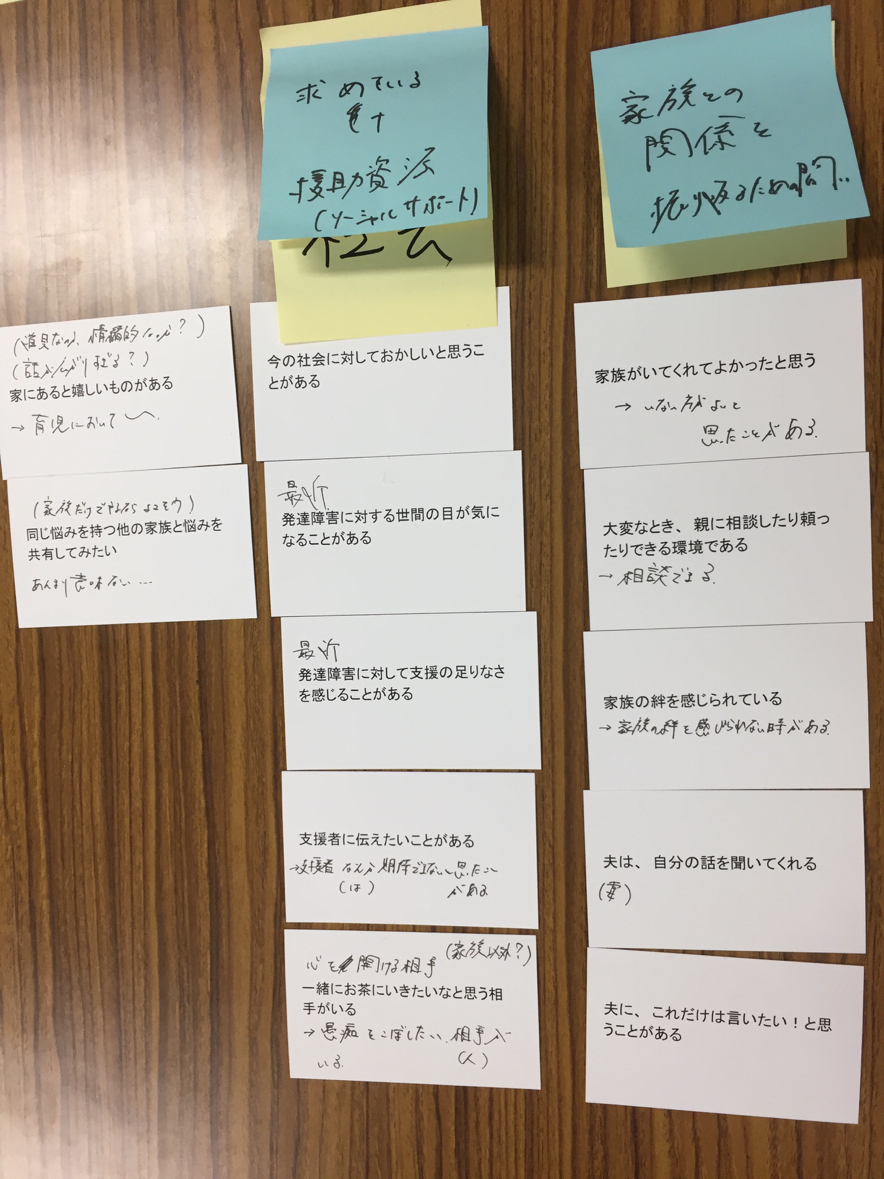 求めている
援助資源
(ソーシャルサポート)
社会
家族との
関係を
振り返るための問…
(道具なのか、情緒的なのか？)
(話が広がりすぎる？)
家にあると嬉しいものがある
→育児において〜
(家族だけでやるならよさそう)
同じ悩みを持つ他の家族と悩みを
共有してみたい
あんまり意味ない…
今の社会に対しておかしいと思うこ
とがある
最近
発達障害に対する世間の目が気に
なることがある
最近
発達障害に対して支援の足りなさ
を感じることがある
支援者に伝えたいことがある
→支援者なんか期待できないと思ったこと
(は)
がある
心を開ける相手
(家族以外？)
一緒にお茶にいきたいなと思う相
手がいる
→愚痴をこぼしたい相手が
(人)
いる.
家族がいてくれてよかったと思う
→いない方がよいと
思ったことがある.
大変なとき、親に相談したり頼っ
たりできる環境である
→相談できる.
家族の絆を感じられている
→家族の絆を感じられない時がある.
夫は、自分の話を聞いてくれる
(妻)
夫に、これだけは言いたい！と思
うことがある